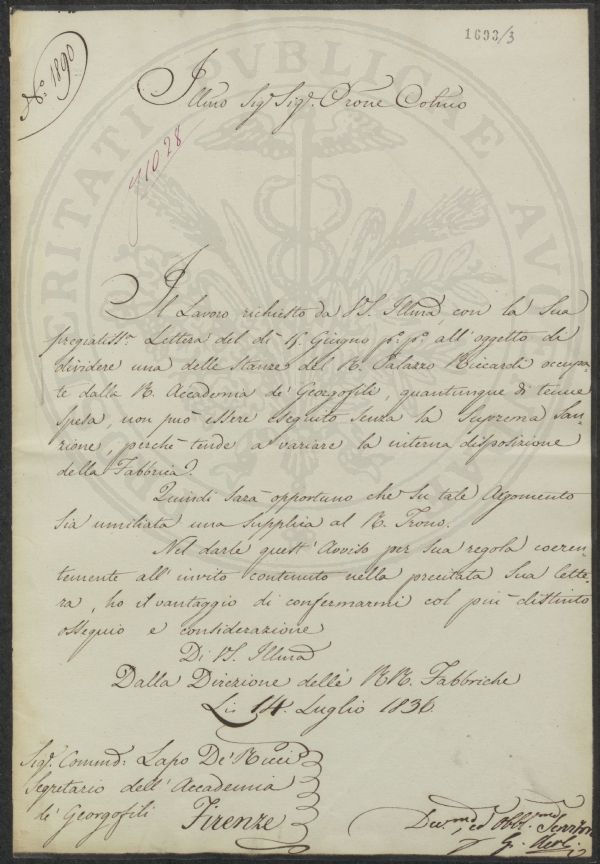 1693/3
N.º 1890
Illmo Sig.r Sig.r Prone Colmo
91028
Il Lavoro richiesto da VS. Illma, con la Sua
pregiatiss.a Lettera del dì Giugno p.º p.º all'oggetto di
dividere una delle Stanze del R. Palazzo Riccardi occupa-
te dalla R. Accademia de' Georgofili, quantunque di tenue
spesa, non può essere eseguito senza la Suprema San-
zione, perchè tende a variare la interna disposizione
della Fabbrica.
Quindi sarà opportuno che su tale Argomento
sia umiliata una Supplica al R. Trono.
Nel darle quest'Avviso per sua regola coeren-
temente all'invito contenuto nella precitata Sua lette-
ra, ho il vantaggio di confermarmi col più distinto
ossequio e considerazione
Di VS. Illma
Dalla Direzione delle RR. Fabbriche
Lì 14. Luglio 1836.
Sig.r Commd: Lapo De' Ricci
Segretario dell'Accademia
de' Georgofili Firenze
Dev.mo, ed Obbl.mo Servitore
G.
VERITATI PUBLICAE